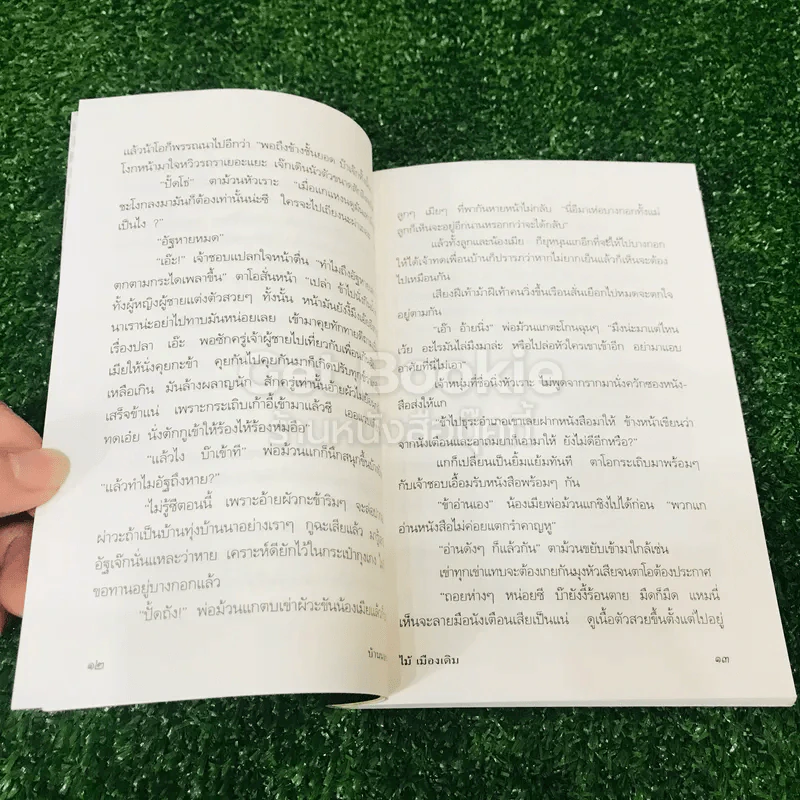 แล้วน้าโอก็พรรณนาไปอีกว่า "พอถึงข้างชั้นยอด
โงกหน้ามาใจหวิวรถราเยอะแยะ เจ๊กเดินนัวตัวขนาด
"ปั้ดโธ่" ตาม้วนหัวเราะ "เมื่อแกแหงนดูมัน
ชะโงกลงมามันก็ต้องเท่านั้นน่ะซี ใครจะไปเถียงนะ
เป็นไง ?"
"อัฐหายหมด"
"เอ๊ะ!" เจ้าชอบแปลกใจหน้าตื่น "ทำไมถึงอัฐหาย
ตกตามกระไดเพลาขึ้น" ตาโอสั่นหน้า "เปล่า ข้าไปนั่ง
ทั้งผู้หญิงผู้ชายแต่งตัวสวยๆ ทั้งนั้น หน้ามันยังงี้
นาเราน่ะอย่าไปทาบมันหน่อยเลย เข้ามาคุยทักทาย
เรื่องปลา เอ๊ะ พอซักครู่เจ้าผู้ชายไปเที่ยวกับเพื่อน
เมียให้นั่งคุยกะข้า คุยกันไปคุยกันมาก็เกิดปรับทุกข์
เหลือเกิน มันล้างผลาญนัก สักครู่เท่านั้นอ้ายผัวไม่
เสร็จข้าแน่ เพราะกระเถิบเก้าอี้เข้ามาแล้วซี
ทดเอ๋ย นั่งตักกูเข้าให้ร้องไห้ร้องห่มอือ"
"แล้วไง บ๊าเข้าที" พ่อม้วนแกก็นึกสนุกขึ้น
"แล้วทำไมอัฐถึงหาย?"
"ไม่รู้ซีตอนนี้ เพราะอ้ายผัวกะข้าริมๆ จะ
ฝาวะถ้าเป็นบ้านทุ่งบ้านนาอย่างเราๆ กูฉะเสียแล้ว
อัฐเจ๊กนั่นแหละว่าหาย เคราะห์ดียักไว้ในกระเป๋ากุงเกง
ขอทานอยู่บางกอกแล้ว
"ปั้ดถัง!" พ่อม้วนแกตบเข่าผัวะขันน้องเมีย
๑๒
ลูกๆ เมียๆ ที่พากันหายหน้าไม่กลับ "นี่อีมาเห่อบางกอกทั้งแม่
ลูกก็เห็นจะอยู่อีกนานหรอกกว่าจะได้กลับ"
แล้วทั้งลูกและน้องเมีย ก็ยุหนุนแกอีกที่จะให้ไปบางกอก
ให้ได้เจ้าทดเพื่อนบ้านก็ปรารภว่าหากไม่ยากเย็นแล้วก็เห็นจะต้อง
ไปเหมือนกัน
เสียงฝีเท้าม้าฝีเท้าคนวิ่งขึ้นเรือนลั่นเยือกไปหมดจะตกใจ
อยู่ตามกัน
"เอ๊ว อ้ายนิ่ง" พ่อม้วนแกตะโกนฉุนๆ "มึงน่ะมาแต่ไหน
เว้ย อะไรมันไล่มึงมาล่ะ หรือไปล่อหัวใครเขาเข้าอีก อย่ามาแอบ
อาศัยที่นี่ไม่เอา"
เจ้าหนุ่มที่ชื่อนิ่งหัวเราะ ไม่พูดจากรากมานั่งควักซองหนัง-
สือส่งให้แก
"ข้าไปธุระอำเภอเขาเลยฝากหนังสือมาให้ ข้างหน้าเขียนว่า
จากนังเตือนและอาเกมยาก็เอามาให้ ยังไม่ดีอีกหรือ?"
แกก็เปลี่ยนเป็นยิ้มแย้มทันที ตาโอกระเถิบมาพร้อมๆ
กับเจ้าชอบเอื้อมรับหนังสือพร้อมๆ กัน
"ข้าอ่านเอง" น้องเมียพ่อม้วนแกชิงไปได้ก่อน "พวกแก
อ่านหนังสือไม่ค่อยแตกรำคาญหู"
"อ่านดังๆ ก็แล้วกัน" ตาม้วนขยับเข้ามาใกล้เช่น
เข่าทุกเข่าแทบจะต้องเกยกันมุงหัวเสียจนตาโอต้องประกาศ
"ถอยห่างๆ หน่อยซี บ๊ายังงี้ร้อนตาย มืดก็มืด แหมนี่
เห็นจะลายมือนังเตือนเสียเป็นแน่ ดูเนื้อตัวสวยขึ้นตั้งแต่ไปอยู่
ไม้ เมืองเดิม
๑๓
Get Bookie
ร้านหนังสือกุ๊กกี้